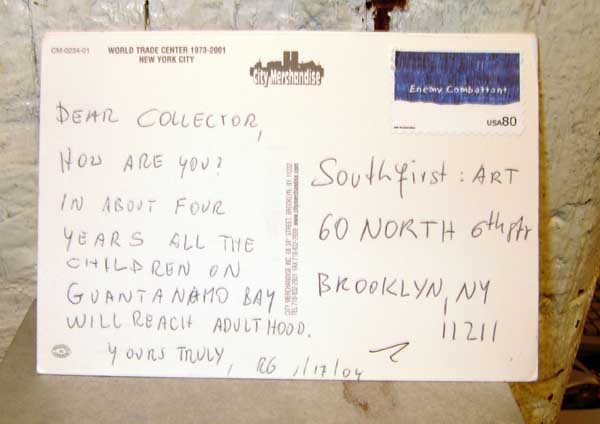 CM-0234-01
WORLD TRADE CENTER 1973-2001
NEW YORK CITY
City Merchandise
Enemy Combattant
USA80
DEAR COLLECTOR,
HOW ARE YOU?
IN ABOUT FOUR
YEARS ALL THE
CHILDREN ON
GUANTANAMO BAY
WILL REACH ADULTHOOD.
YOURS TRULY,
RG 1/17/04
CITY MERCHANDISE INC. 68 34th STREET, BROOKLYN, NY 11232
Southfirst: ART
60 NORTH 6th str
BROOKLYN, NY
11211